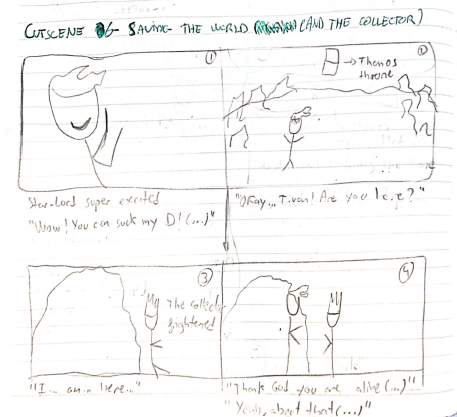 CUTSCENE 06 - SAVING THE WORLD (AND THE COLLECTOR)
1
2
→ Thanos
throne
Star-Lord super excited
"Wow! You can suck my D! (...)"
"Okay... Tivan! Are you here?"
3
4
The Collector
frightened
"I... am... here..."
"Thank God you are alive (...)"
"Yeah, about that (...)"